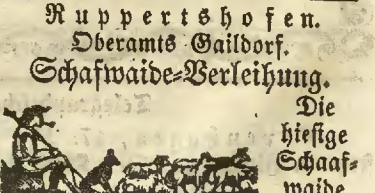 Ruppertshofen.
Oberamts Gaildorf.
Schafwaide-Verleihung.
Die
hiesige
Schaaf-
waide